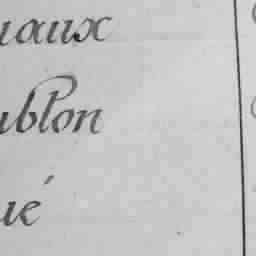 uaux
ublon
ué